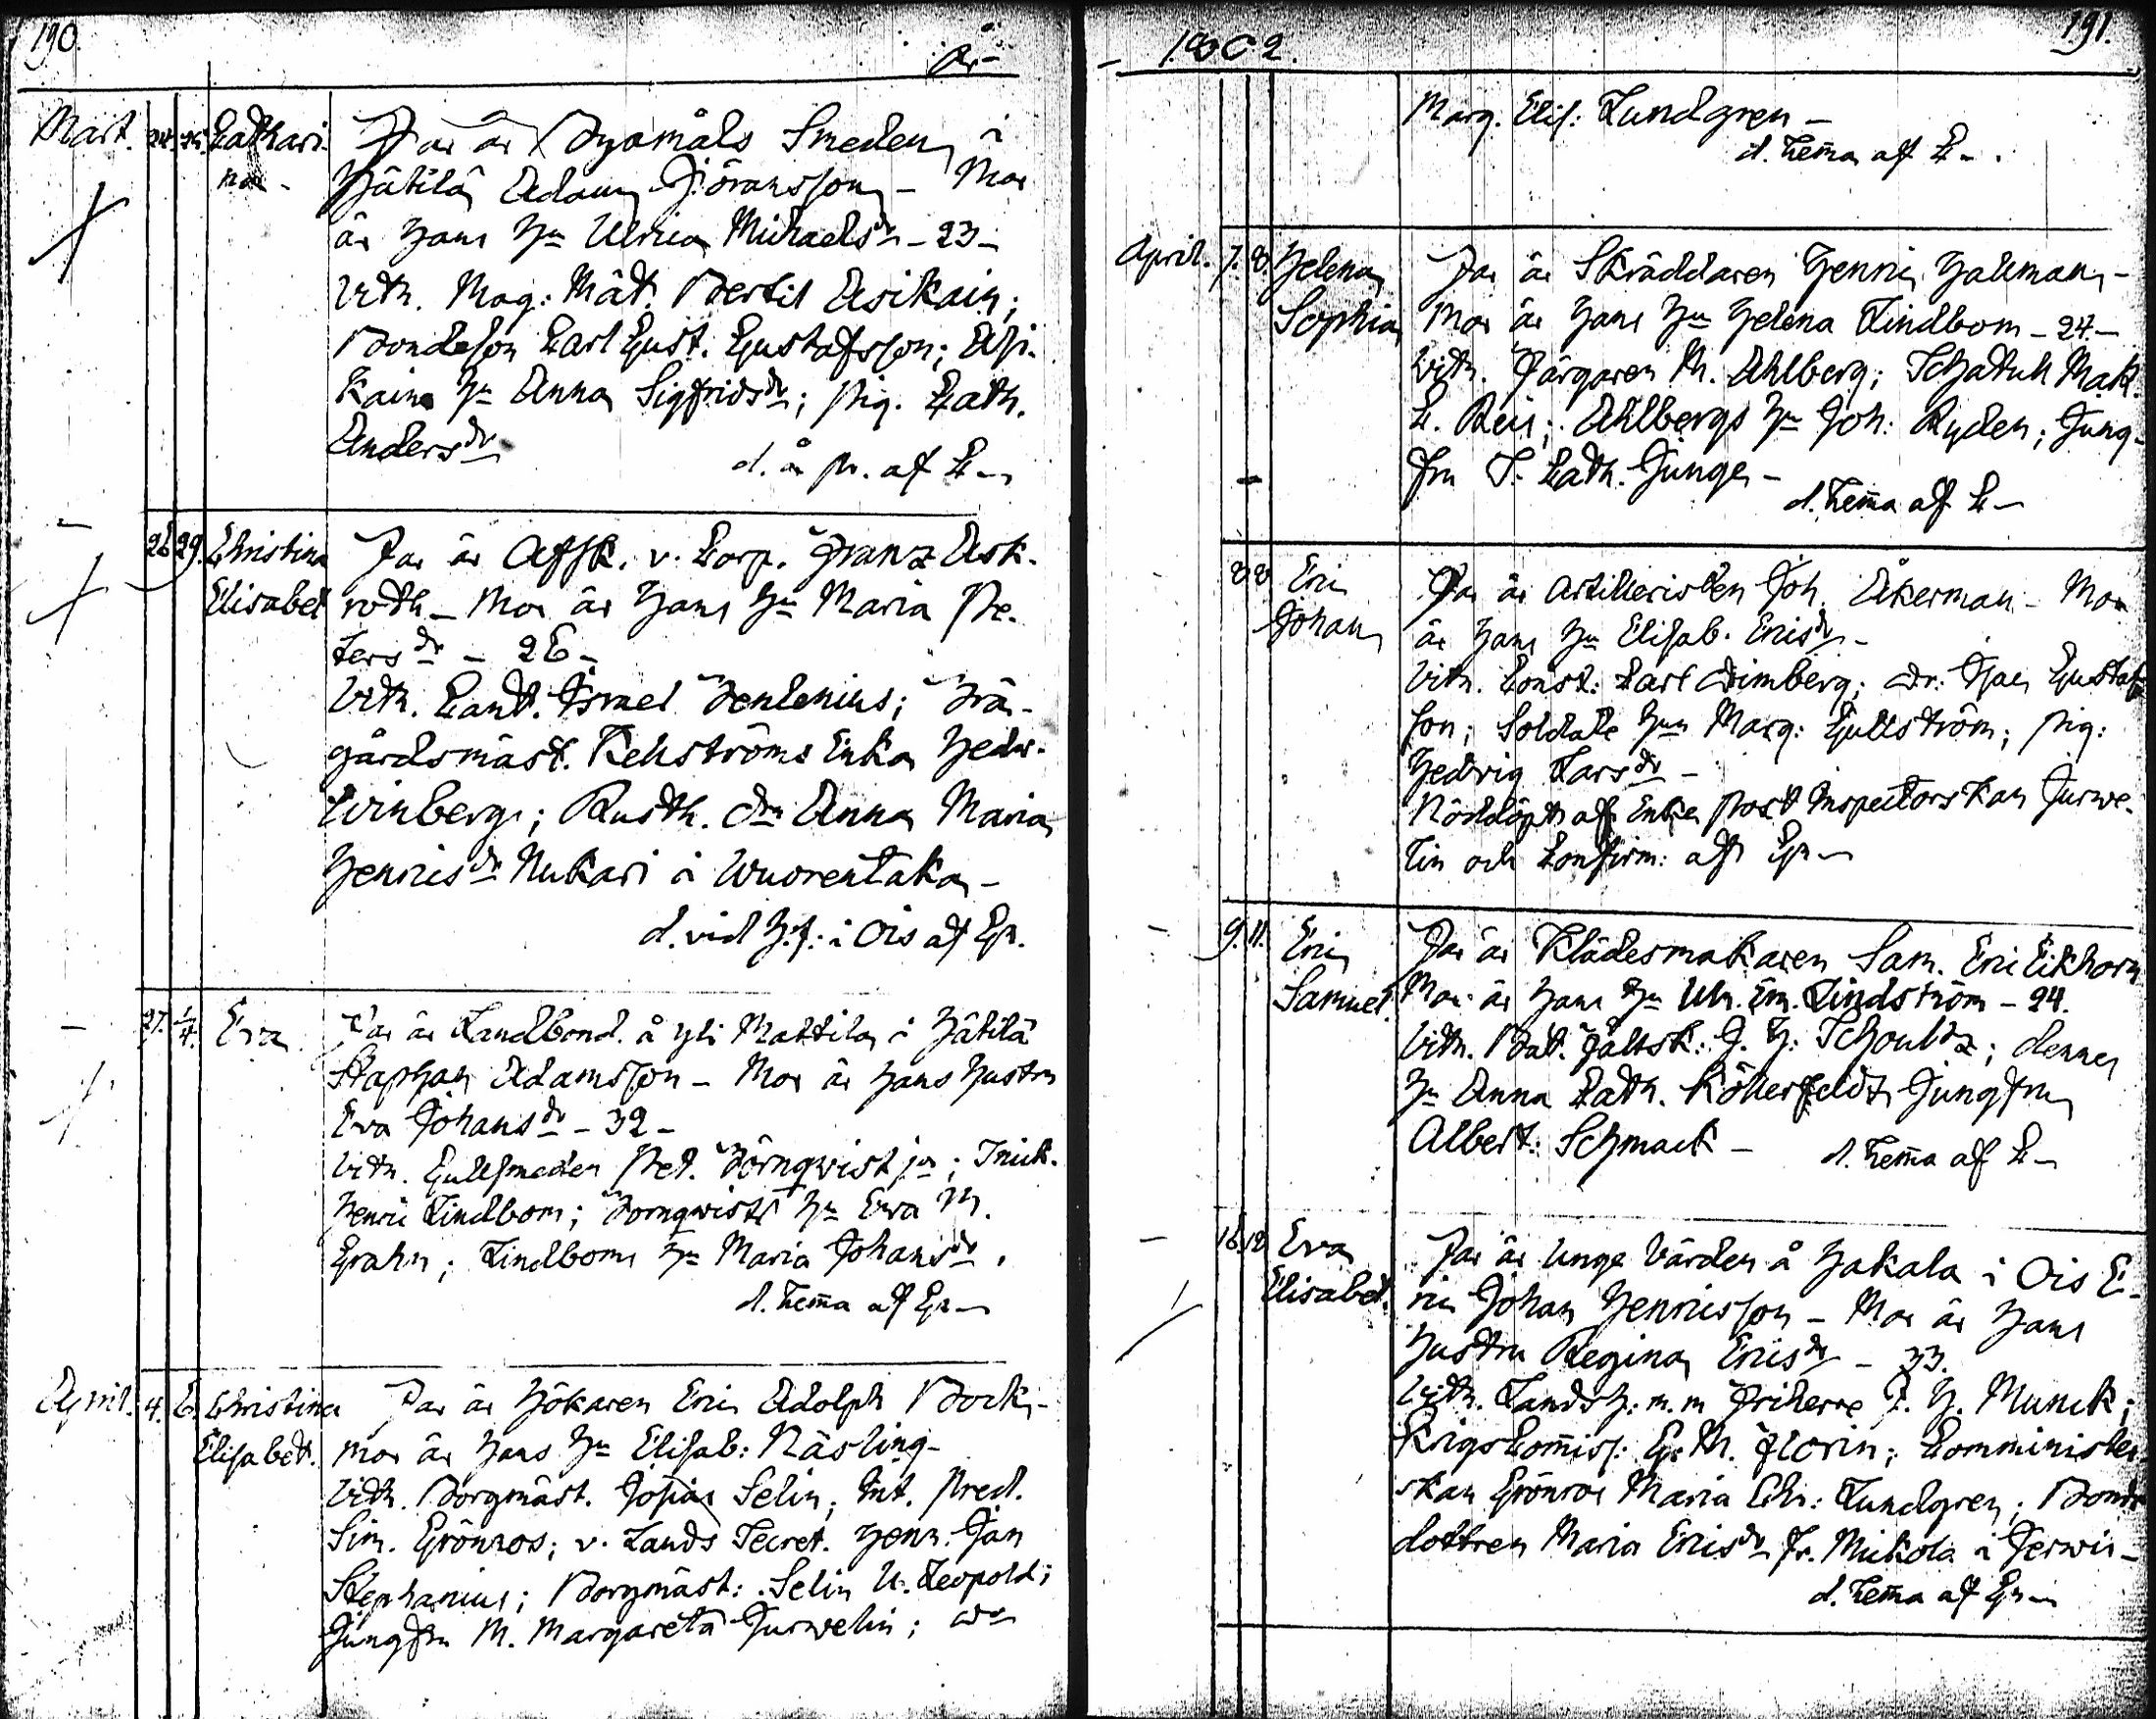 190.
År
Mart. 24. 25. Cathari- Far är Byamåls Smeden i
na - Hätilä Adam Jöransson - Mor
är hans Hu Ulrica Michaelsdr - 23 -
Vitn. Mag: Måt. Bertil Asikain;
Bondeson Carl Gust. Gustafsson; Asi-
kains Hu Anna Sigfridsdr; pig. Cath.
Andersdr
d. å pr. af C -
26 29. Christina Far är Affsk. v. Corp. Franz Ask-
Elisabet roth - Mor är hans Hu Maria Pe-
tersdr - 26 -
Vitn. Cand. Israel Denlenius; Trä-
gårdsmäst. Rehströms Enka Hedv.
Winberg; Rusth. dr Anna Maria
Henricsdr Nukari i Wuorentaka -
d. vid H.f: i Ois af Gr.
27. 1/4. Eva. Far är Landbond. å Yli Mattila i Hätilä
Staphan Adamsson - Mor är hans hustru
Eva Johansdr - 32 -
Vitn. Gullsmeden Pet. Törnqwist jr; Snick.
Henric Lindbom; Törnqwists Hu Eva M.
Grahn; Lindboms Hu Maria Johansdr.
d. hema af Gr -
April. 4. 6. Christina Far är Hökaren Eric Adolph Bock -
Elisabet. mor är hans Hu Elisab: Näsling -
Vitn. Borgmäst. Josias Selin; Int. Pred.
Sim. Grönros; v. Lands Secret. Henr. Jan
Stephanius; Borgmäst: Selin U. Leopold;
Jungfru M. Margareta Jurvelin; do
- 1802. 191.
Marg. Elis: Lundgren -
d. hema af C - .
April. 7. 8. Helena Far är Skräddaren Henric Hallman -
Sophia Mor är hans Hu Helena Lindbom - 24 -
Vitn. Färgaren M. Ahlberg; Schatull Mak.
C. Reis; Ahlbergs Hu Joh: Ryden; Jung-
fru S. Cath. Junge -
d. hema af C -
8 8 Eric Far är Artilleristen Joh. Åkerman - Mor
Johan är hans Hu Elisab. Ericsdr -
Vitn. Const: Carl Dimberg; Dr: Isac Gustaf
son; Soldate Hu Marg: Gullström; pig:
Hedvig Larsdr -
Nöddöpt af Enke Post Inspectorskan Jurwe-
lin och Confirm: af Gr -
9. 11. Eric Far är Klädesmakaren Sam. Eric Eikhorn
Samuel. Mor är hans Hu Ulr. Em. Lindström - 24.
Vitn. Bat. Fältsk: J. H: Schoultz; dennes
Hu Anna Cath. Köllerfeldt Jungfru
Albert: Schmack - d. hema af C -
16 18 Eva Far är Unge Värden å Hakala i Ois E-
Elisabet. ric Johan Henricsson - Mor är hans
hustru Regina Ericsdr - 33.
Vitn. Landsh: m.m Friherre J. H. Munck;
Krigs Commiss: G. M. Florin; Comminister
skan Grönros Maria Chr: Lundgren; Bonde
dottren Maria Ericsdr fr. Mickola i Jerwis -
d. hema af Gr -